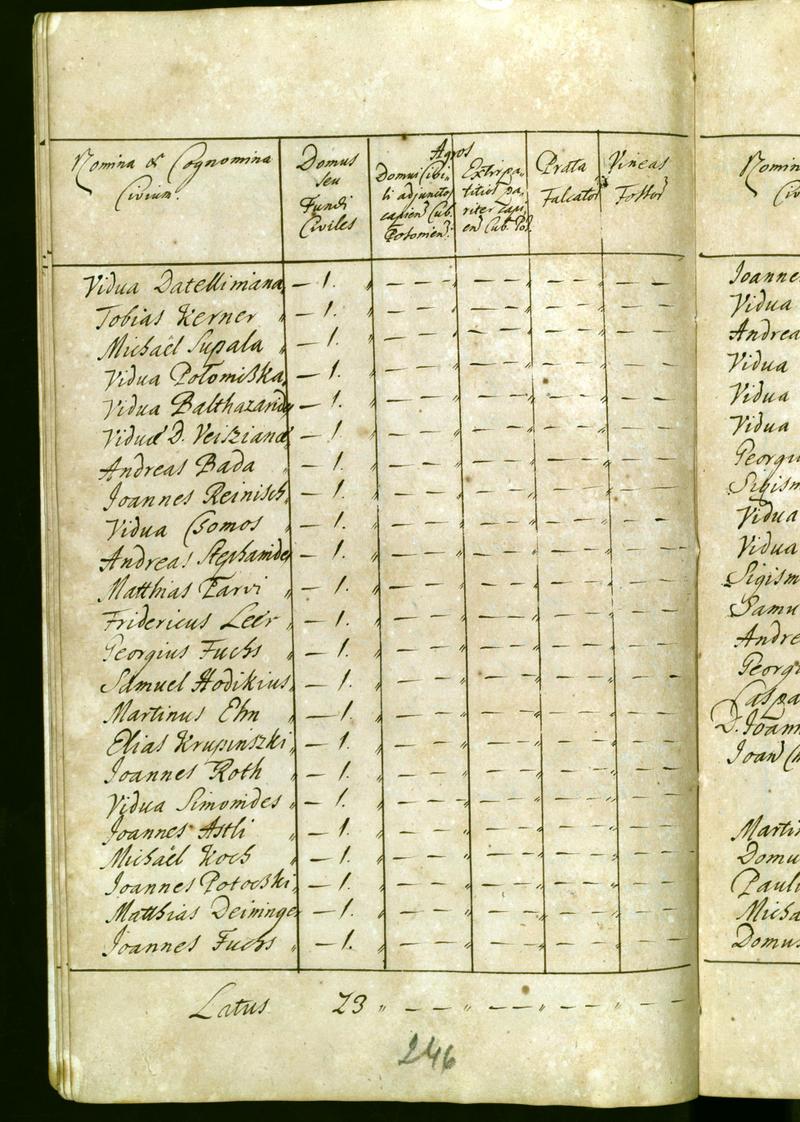 Nomina & Cognomina
Civium.
Domus
seu
Fundi
Civiles
Agros
Domui Civi-
li adjunctos
capien Cub.
Posonien.
Extirpa-
titios pa-
riter capi-
en Cub. Pos.
Prata
Falcator
Vineas
Fossor
Vidua Datellimiana — 1. " — — " — — " — — " — —
Tobias Kerner " — 1. " — — " — — " — — " — —
Michaël Supala " — 1. " — — " — — " — — " — —
Vidua Potomißka " — 1. " — — " — — " — — " — —
Vidua Balthazarides — 1. " — — " — — " — — " — —
Viduæ D. Veiszianæ — 1. " — — " — — " — — " — —
Andreas Bada " — 1. " — — " — — " — — " — —
Joannes Reinisch " — 1. " — — " — — " — — " — —
Vidua Csomos " — 1. " — — " — — " — — " — —
Andreas Stephanides — 1. " — — " — — " — — " — —
Matthias Parvi " — 1. " — — " — — " — — " — —
Fridericus Leer " — 1. " — — " — — " — — " — —
Georgius Fuchs " — 1. " — — " — — " — — " — —
Samuel Hodikius " — 1. " — — " — — " — — " — —
Martinus Ehn " — 1. " — — " — — " — — " — —
Elias Krupinszki " — 1. " — — " — — " — — " — —
Joannes Roth " — 1. " — — " — — " — — " — —
Vidua Simonides " — 1. " — — " — — " — — " — —
Joannes Astli " — 1. " — — " — — " — — " — —
Michaël Koch " — 1. " — — " — — " — — " — —
Joannes Potocski " — 1. " — — " — — " — — " — —
Matthias Deininger — 1. " — — " — — " — — " — —
Joannes Fuchs " — 1. " — — " — — " — — " — —
Latus 23 " — — " — — " — — " — —
246
Nomin
Civ
Joannes
Vidua
Andrea
Vidua
Vidua
Vidua
Georgiu
Sigism
Vidua
Vidua
Sigism
Samu
Andre
Georgi
Caspa
D. Joann
Joan
Martin
Domu
Pauli
Micha
Domus